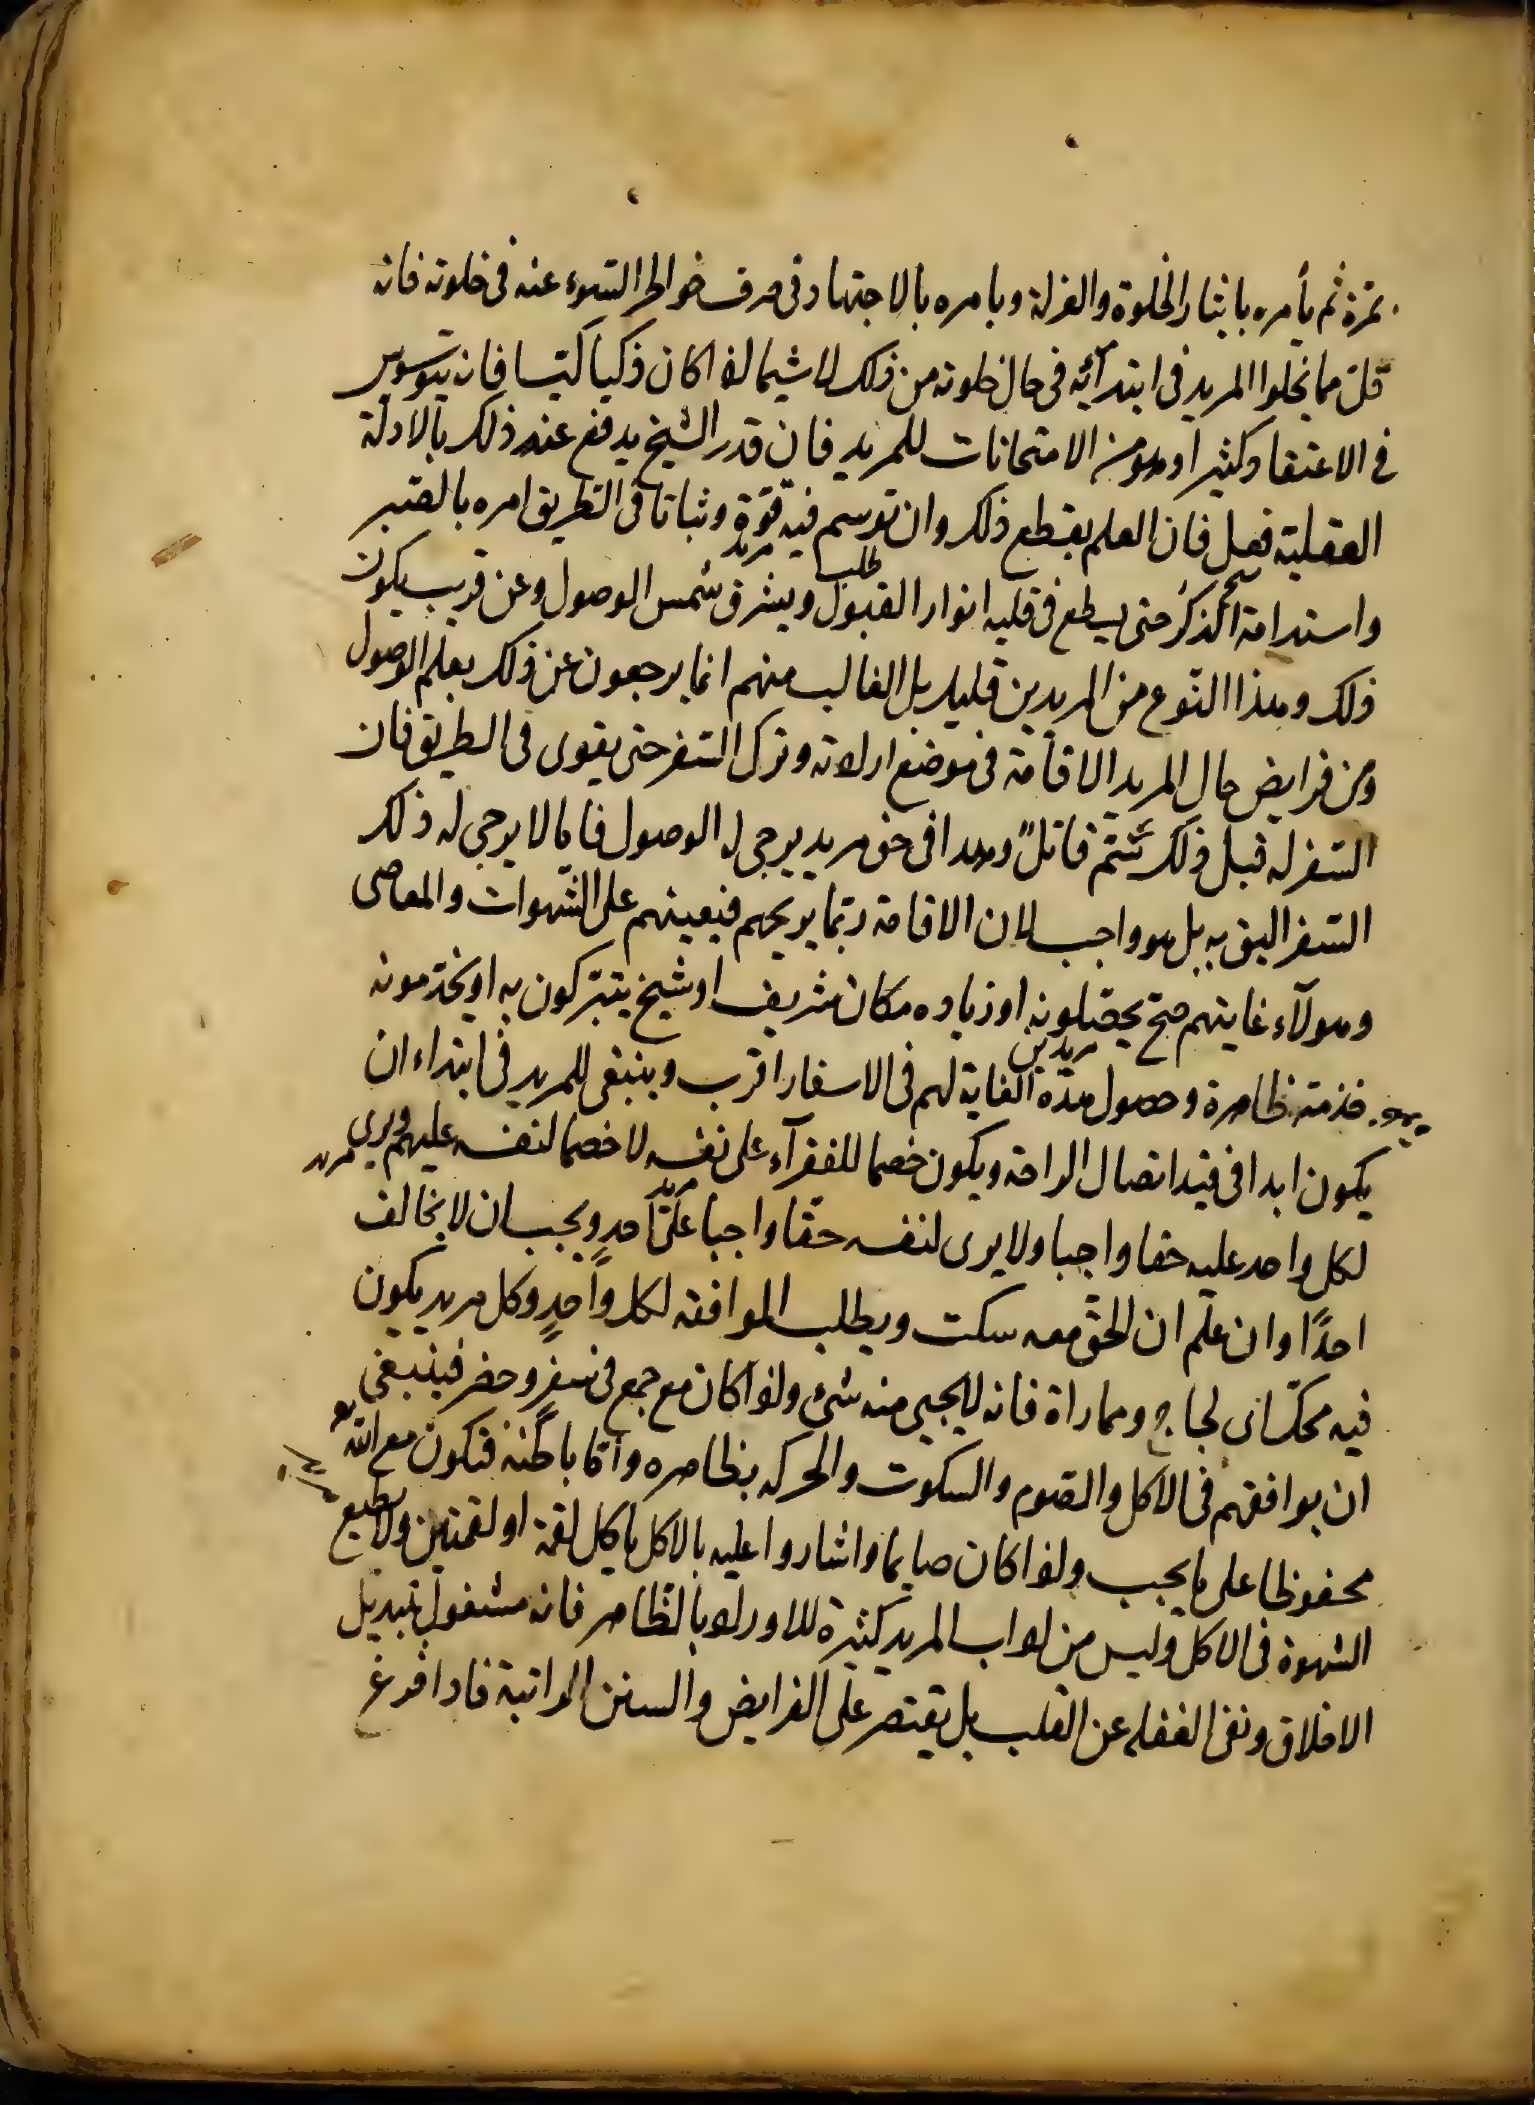 بمرة ثم يأمره بايثار الخلوة والعزلة ويامره بالاجتهاد فى صرف خواطر السوء عنه فى خلوته فانه
قلّ مما يخلوا المريد فى ابتدآئه فى حال خلوته من ذلك لا سيّما اذا كان ذكيا كيّسا فانه يتوسوس
فى الاعتقاد كثيرا وهو من الامتحانات للمريد فان قدر الشيخ يدفع عنه ذلك بالادلّة
العقليّة فعل فان العلم يقطع ذلك وان توسم فيه قوّة وثباتا فى الطريق امره بالصّبر
مريد طلب
واستدامة الذكر حتى يسطع فى قلبه انوار القبول ويشرق شمس الوصول وعن قريب يكون
ذلك وهذا النّوع من المريدين قليل بل الغالب منهم انما يرجعون عن ذلك بعلم الوصول
ومن فرايض حال المريد الاقامة فى موضع ارادته وترك السّفر حتى يقوى فى الطريق فان
السّفر له قبل ذلك سمّ قاتلٌ وهذا فى حق مريد يرجى له الوصول فاما لا يرجى له ذلك
السّفر اليق به بل هو واجب لان الاقامة ربّما يريحهم فيعينهم على الشّهوات والمعاصى
وهولآء غايتهم حج يحصّلونه او زياده مكان شريف او شيخ يتبّركون به او يخدّمونه
مريدين
خدمة ظاهرة وحصول هذه الغاية لهم فى الاسفار اقرب وينبغى للمريد فى ابتداء ان
يكون ابدا فى قيد اتصال الراحة ويكون خصما للفقرآء على نفسه لا خصما لنفسه عليهم ويرى
مريد
لكل واحد عليه حقا واجبا ولا يرى لنفسه حقّا واجبا على احدٍ ويجب ان لا يخالف
احدًا وان علم ان الحقّ معه سكت ويطلب الموافقه لكل واحدٍ وكل مريد يكون
فيه محك اى لجاج ومماراة فانه لا يجيى منه شئ واذا كان مع جمع فى سفرٍ وحضر فينبغى
ان يوافقهم فى الاكل والصّوم والسكوت والحركه بظاهره واما باطنه فتكون مع الله
محفوظا على ما يجب واذا كان صايما واشاروا عليه بالاكل ياكل لقمة او لقمتين ولا يطيع
الشهوة فى الاكل وليس من اداب المريد كثرة الاوراد بالظاهر فانه مشغول بتبديل
الاخلاق ونفى الغفله عن القلب بل يقتصر على الفرايض والسنن الراتبة فاذا فرغ